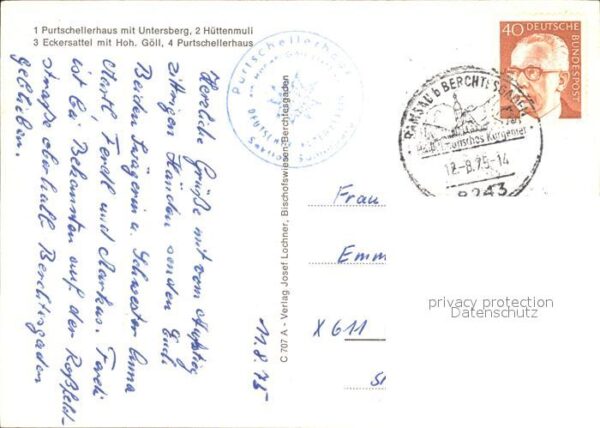 1 Purtschellerhaus mit Untersberg, 2 Hüttenmuli
3 Eckersattel mit Hoh. Göll, 4 Purtschellerhaus
Herzliche Grüße mit vom Aufstieg
zittrigen Händen senden Euch
Beiden Trägerin u. Schwester Anna
Ferdl und Markus.
ist bei Bekannten auf der Roßfeld-
straße oberhalb Berchtesgaden
geblieben.
11.8.75
C 707 A - Verlag Josef Lochner, Bischofswiesen-Berchtesgaden
Purtschellerhaus
40 DEUTSCHE BUNDESPOST
RAMSAU b BERCHTESGADEN
heilklimatisches Kurgebiet
12.-8.75-14
8243
Frau
Emm
X 611
privacy protection
Datenschutz